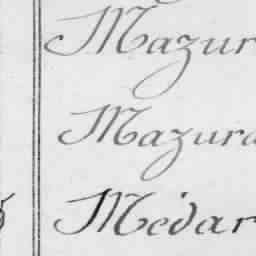 Mazur
Mazura
Medar